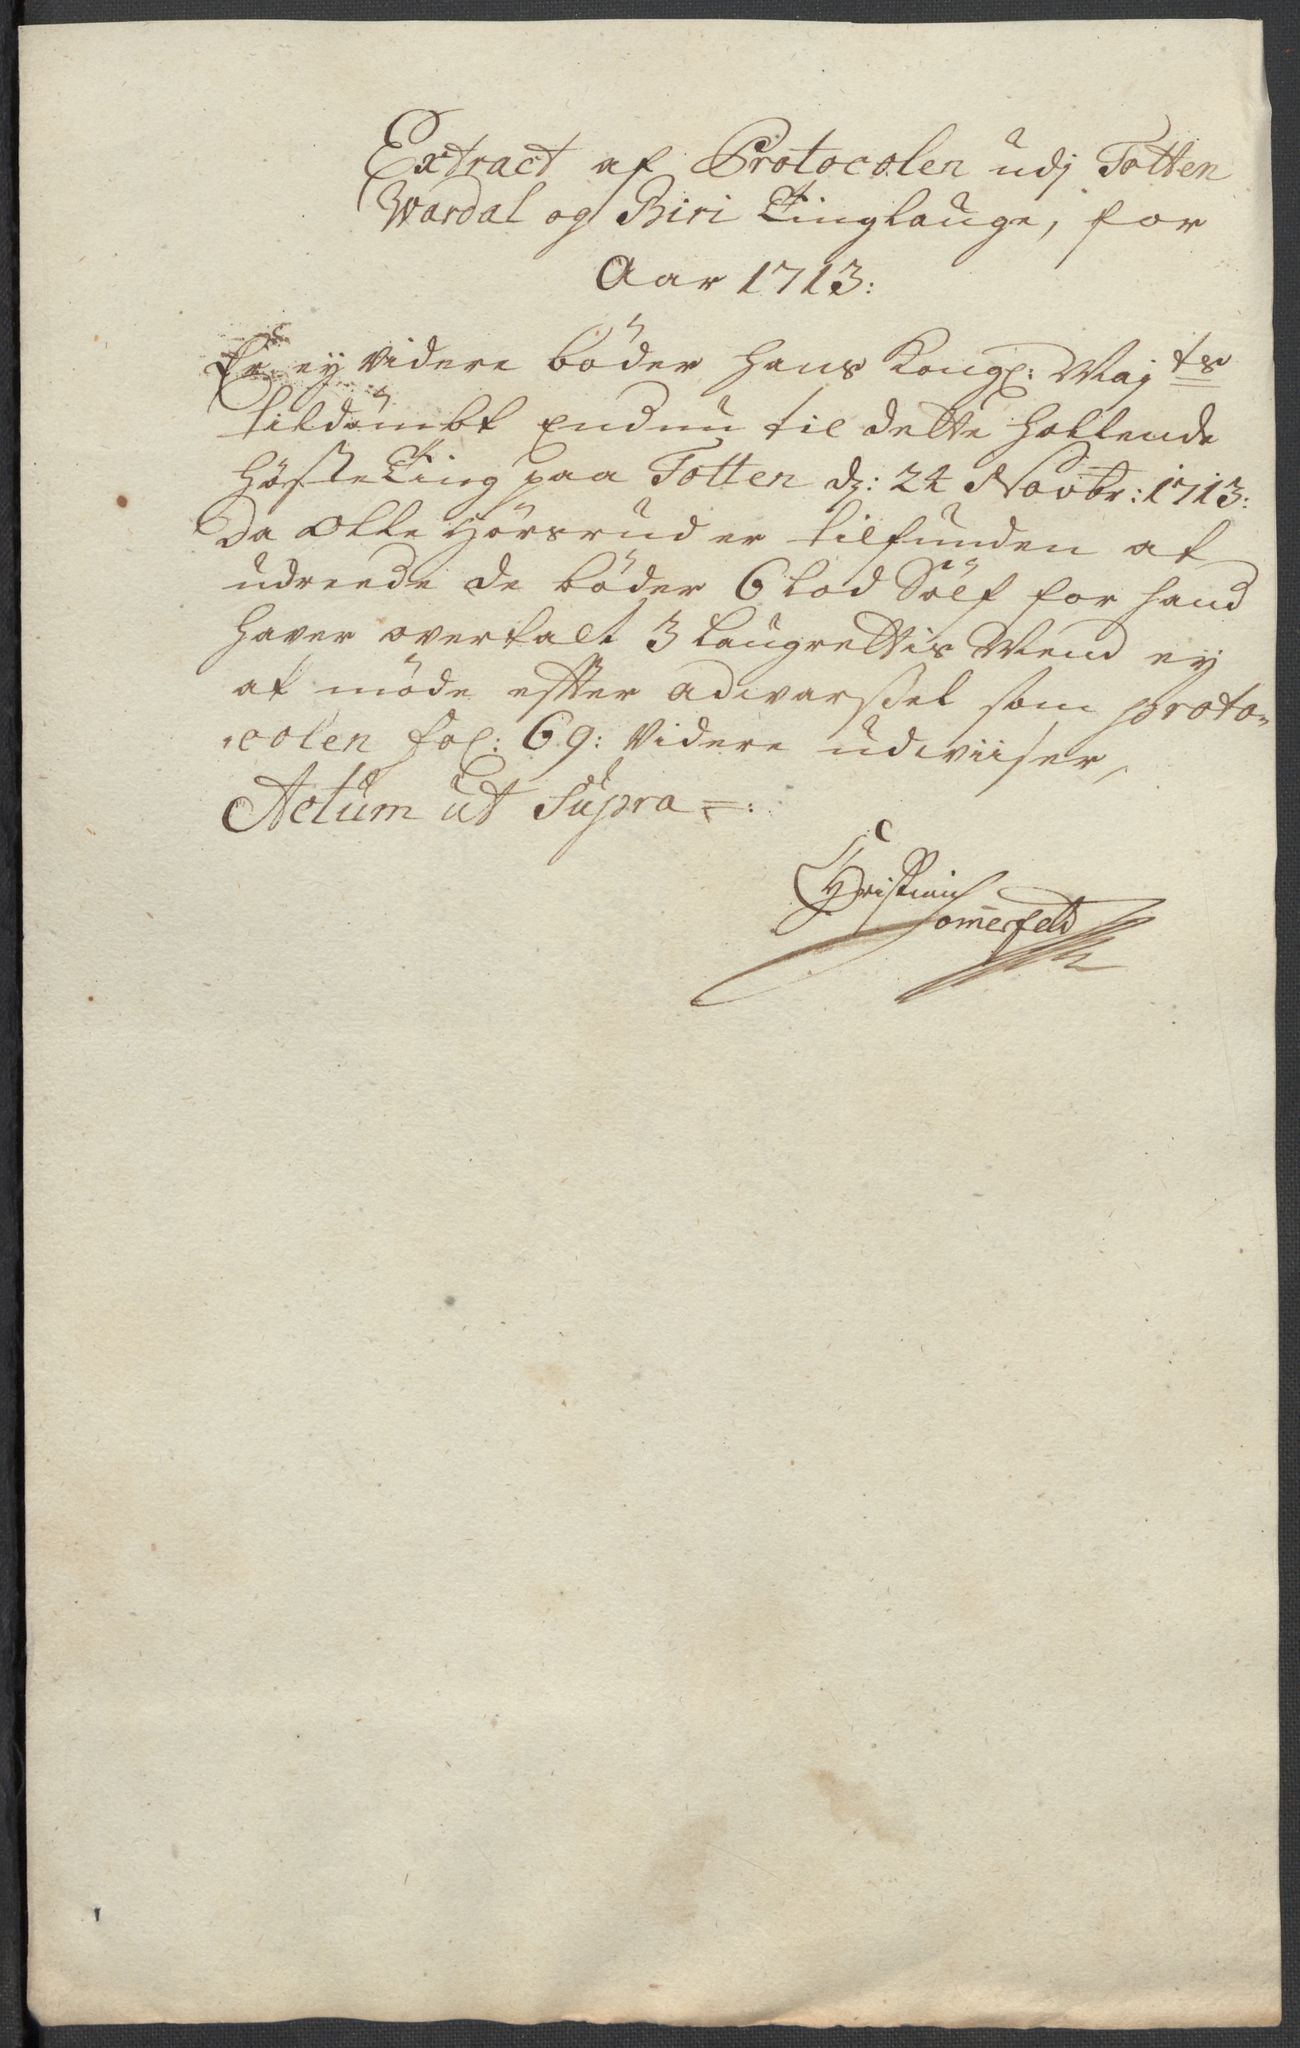 Extract af Protocolen udj Totten
Wardal og Biri Tinglauge, for
Aar 1713:
Er ey videre böder Hans Kongl: Maj ts
tildömbt Endnu til dette Hollende
Höste Ting paa Totten d: 24 Novbr: 1713:
Da Olle Hörsrud er tilfunden at
udreede de böder 6 Lod Sölf for hand
haver overfalt 3 Laugrettis Mend ey
at möde effter adwarssel som proto-
colen fol: 69: videre udwiiser,
Actum ut Supra
Christian
Somerfeld